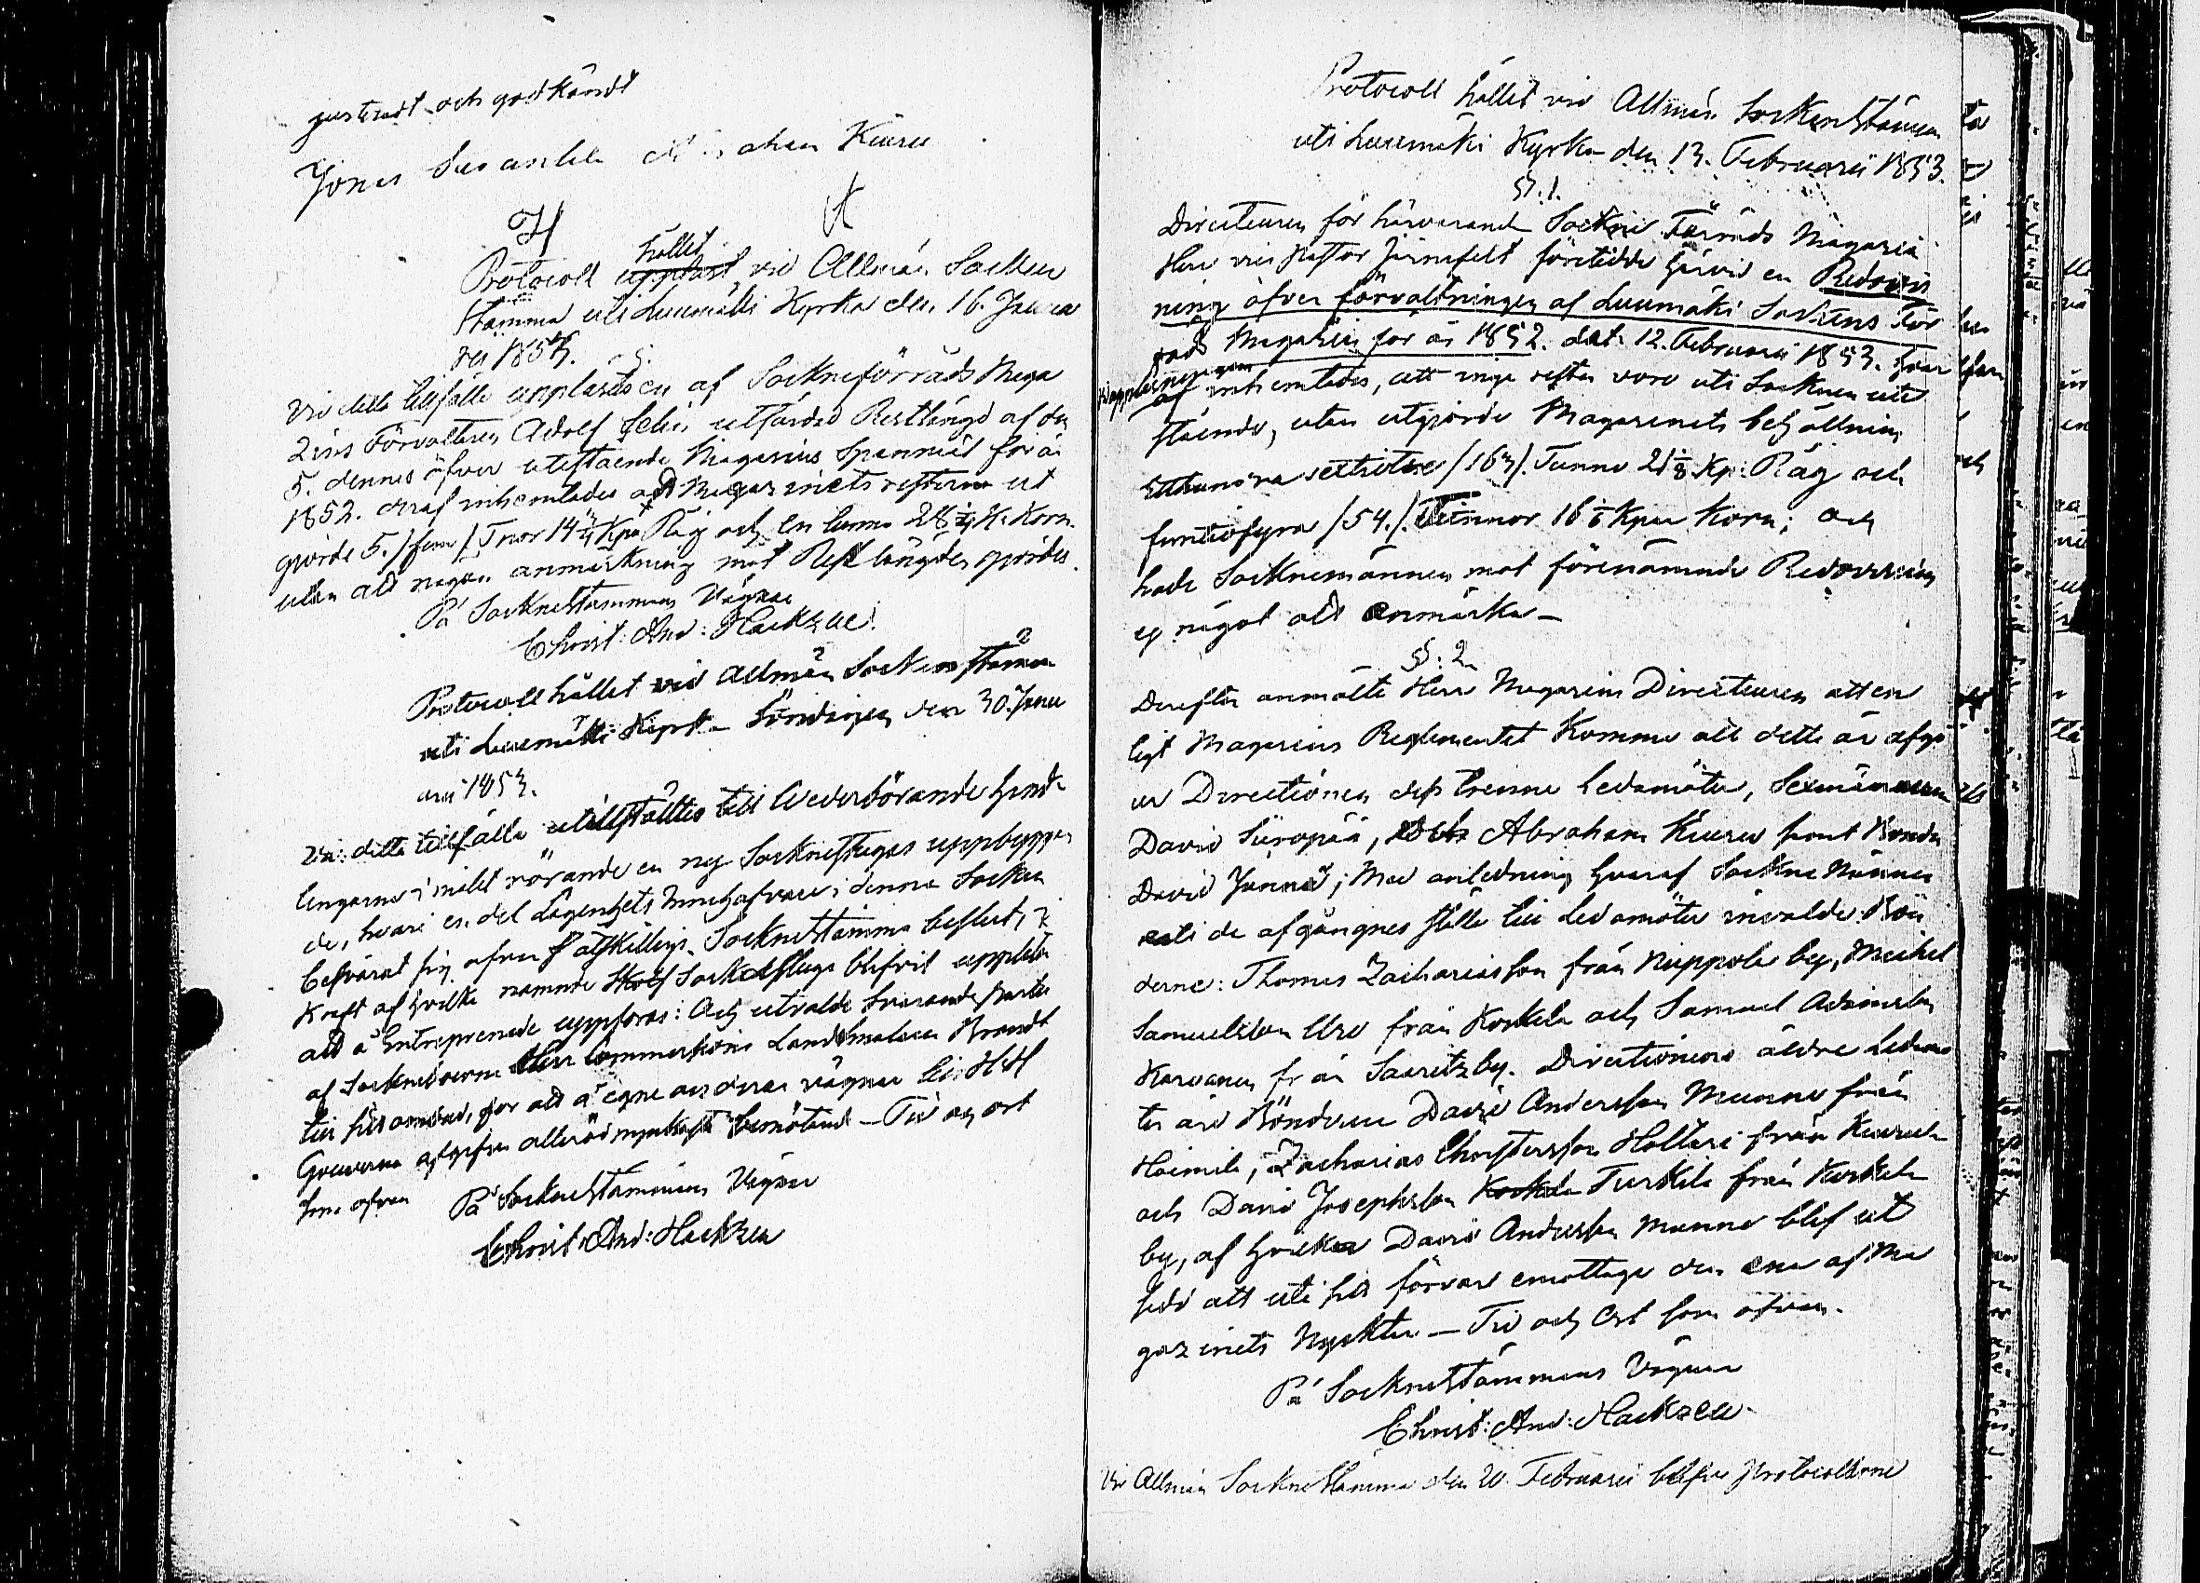 justeradt och godkändt
Jonas Suranhla Abraham Kiuru
Protocoll upplåst hållet vid Allmän Socken
Stämma uti Luumäki Kyrka den 16. Janua
rii 1853.
§.
Vid detta tillfälle upplästes en af Sockneförråds Maga
zins Förvaltaren Adolf utfärdad Restlängd af den
5. dennes öfver utestående Magasins Spanmål för år
1852. deraf inhemtades att Magazinets rester ut
gjorde 5. /fem/ Tnor 14 Kpr Råg och en tunna 28 K: Korn.
utan att någon anmärkning mot Restlängden gjordes.
På Socknestämmans Vägnar
Christ: And: Hackzell.
Protocoll hållet vid Allmän Sockenstämma
uti Luumäki Kyrka Söndagen den 30. Janu
arii 1853.
Vid detta tillfälle utställtes till Wederbörande hand
lingarne i målet rörande en ny Socknestugas uppbyggan
de, hvari en del Lägenhets Innehafvare i denna Socken
besvärat sig öfver åtskillige Socknestämma beslut, i
kraft af hvilka nämnde Sockenstuga blifvit
att å Entreprenade uppföras: Och utvalde Svarande parter
af Sockneboerne Herr Commissions Landtmätaren Brandt
till sitt ombud, för att å egne och deras vägnar till HH
Gouverneuren afgifva allerödmjukaste bemötande — Tid och ort
som ofvan
På Socknestämmans Vägnar
Christ: And: Hackzell
Protocoll hållet vid Allmän Sockenstämma
uti Luumäki Kyrka den 13. Februarii 1853.
§. 1.
Directeuren för härvarande Sockne Förråds Magazin
Herr vice Pastor Järnefelt företedde härvid en Redovis
ning öfver förvaltningen af Luumäki Sockens För
råds Magasin för år 1852. dat: 12. Februarii 1853. hvar
af inhemtades, att inga rester voro uti Socknen ute
stående, utan utgjorde Magazinets behållning
Etthundra sextiotre /163/. Tunnor 21 1/8 Kp: Råg och
femtiofyra /54./. Tunnor 16 Kpr Korn; och
hade Socknemännen mot förenämnde Redovisning
ej något att anmärka —
§: 2.
Derefter anmälte Herr Magasins Directeuren att en
ligt Magasins Reglementet komma att dette år afgå
ur Directionen dess trenne Ledamöter, Sexmännen
David Suropää, Abraham Kiuru samt Bonden
David Janna; Med anledning hvaraf Sockne Männen
uti de afgångnes ställe till Ledamöter invalde Bön
derne: Thomas Zachariasson från Nuppola by, Michel
Samuelsson Uro från Korkela och Samuel Adamsson
Karvanen från Saaritz by. Directionens äldre Ledamö
ter äro Bönderne David Andersson Munne från
Haimila, Zacharias Christersson Holttari från Kiurula
och David Josephsson Korkela Turkila från Korkela
by, af hvilka David Andersson Munne blef ut
sedd att uti sitt förvar emottaga den ena af Ma
gazinets Nycklar — Tid och Ort som ofvan.
På Socknestämmans Vägnar
Christ: And: Hackzell
Vid Allmän Socknestämma den 20. Februarii blefvo Protocollerne